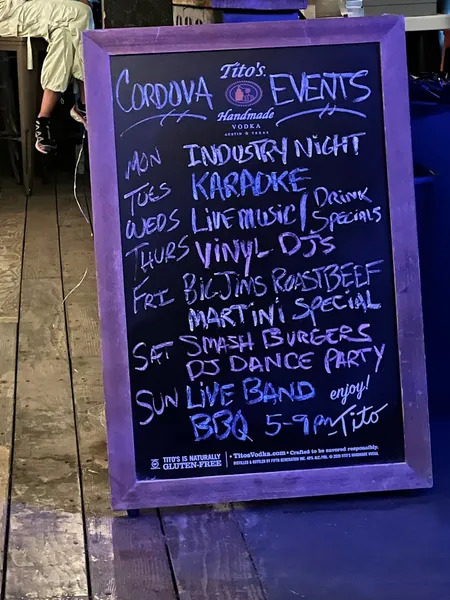 CORDOVA Tito's EVENTS
Handmade
VODKA
AUSTIN TEXAS
MON INDUSTRY NIGHT
TUES KARAOKE
WEDS LIVE MUSIC / DRINK SPECIALS
THURS VINYL DJ'S
FRI BIG JIMS ROAST BEEF
MARTINI SPECIAL
SAT SMASH BURGERS
DJ DANCE PARTY
SUN LIVE BAND enjoy!
BBQ 5-9PM Tito
TITO'S IS NATURALLY GLUTEN-FREE
TitosVodka.com • Crafted to be savored responsibly.